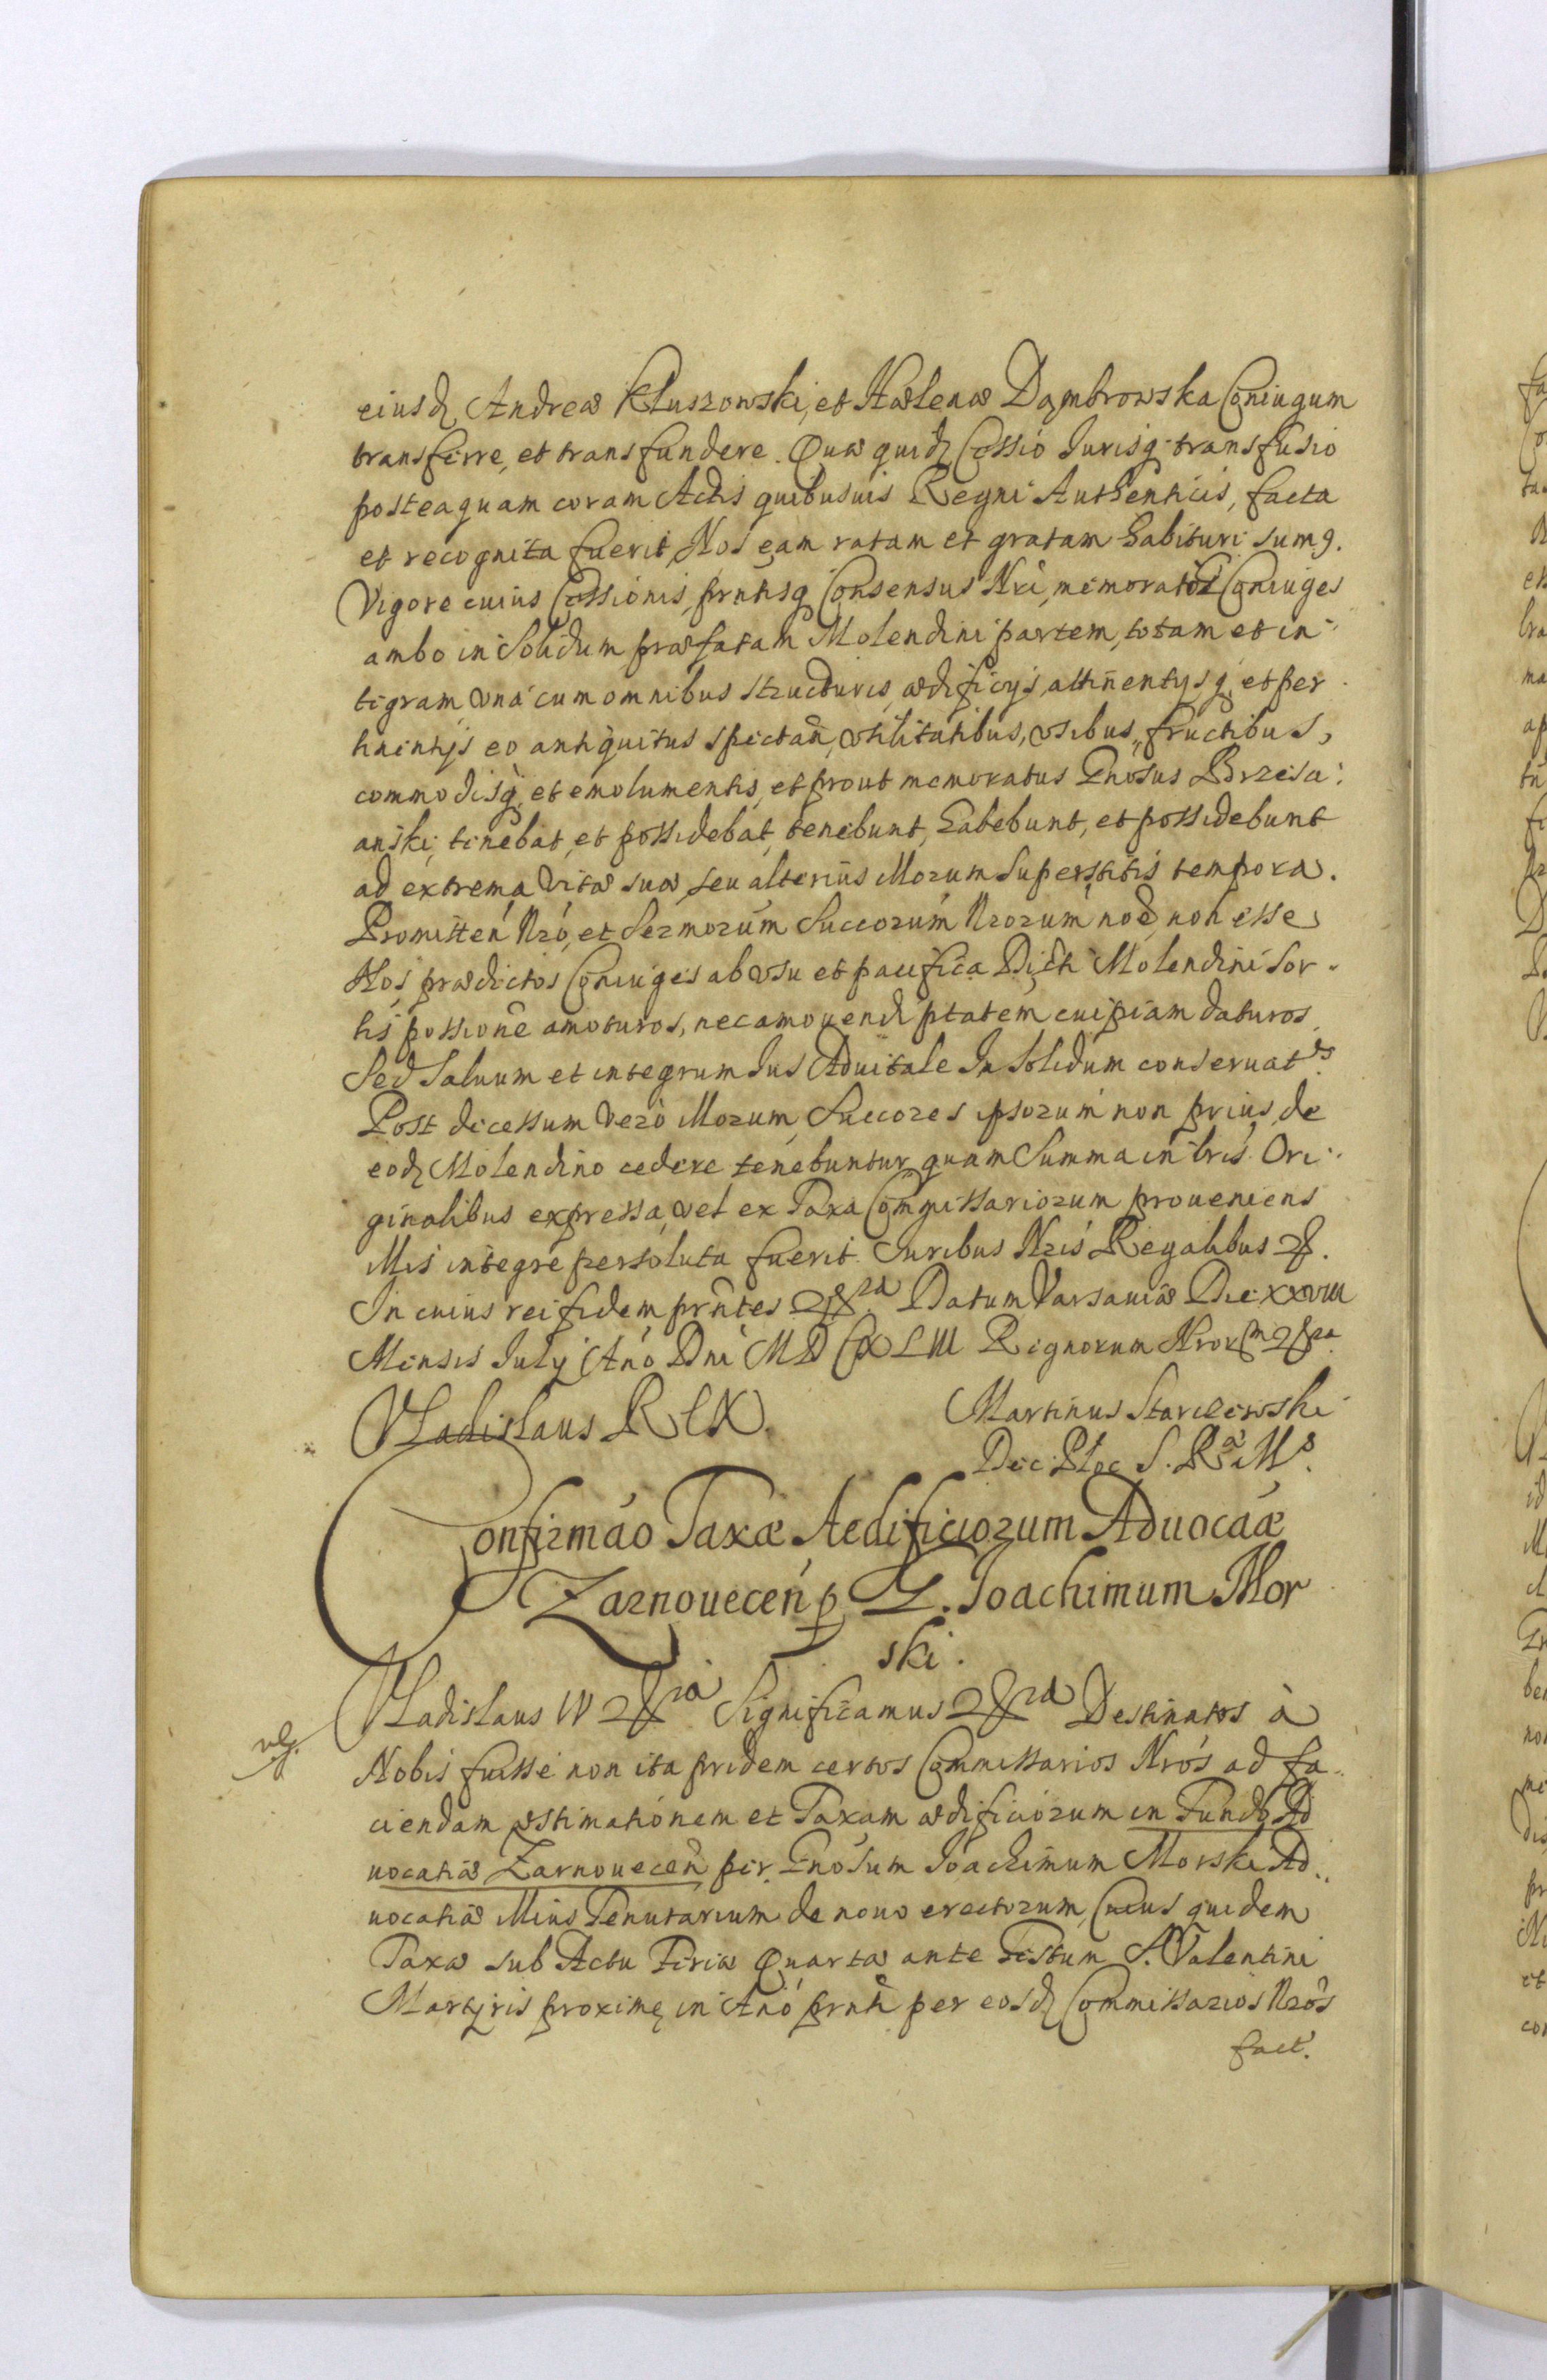 eiusd Andreæ Kluszowski, et Hælenæ Dąmbrowska Coniugum
transferre, et transfundere. Quæ quid Cessio Iurisq transfusio
posteaquam coram Actis quibusuis Regni Authenticis, facta
et recognita fuerit, Nos eam ratam et gratam habituri sum9.
Vigore cuius Cessionis, prntisq Consensus Nri, memorati Coniuges
ambo in Solidum præfatam Molendini partem, totam et in
tigram, vna cum omnibus structuris, ædificijs, attinentysq, et per
tinentijs eo antiquitus spectan, vtilitatibus, vsibus, fructibus,
commodisq, et emolumentis, et prout memoratus Gnosus Brzesa
anski, tenebat, et possidebat, tenebunt, habebunt, et possidebunt
ad extrema Vitæ suæ, seu alterius Illorum superstitis tempora.
Promitten Nro, et Sermorum Succorum Nrorum noe, non esse
Nos prædictos Coniuges ab vsu et pacifica Dicti Molendini Sor
tis possione amoturos, nec amouendi ptatem cuipiam daturos
Sed Saluum et integrum Ius Aduitale In Solidum conseruat.
Post decessum Vero Illorum, Succores ipsorum non prius, de
eod Molendino cedere tenebuntur, quam Summa in lris Ori
ginalibus expressa, vel ex Taxa Commissariorum proueniens
Illis integre persoluta fuerit. Iuribus Nris Regalibus &.
In cuius rei fidem prntes &ra Datum Varsauiæ Die XXVIII
Mensis July Ano Dni MDCXLIII Regnorum Nrorm &ra
Vladislaus REX.
Martinus Starczewski
Dec: Ploc S. Ra Ms.
Confirmao Taxæ Aedificiorum Aduocaæ
Zarnouecen p G. Ioachimum Mor
ski.
Vladislaus IV &ra Significamus &ra Destinatos à
Nobis fuisse non ita pridem certos Commissarios Nros ad fa
ciendam æstimationem et Taxam ædificiorum in Fund Ad
uocatiæ Zarnouecen per Gnosum Ioachimum Morski Ad
uocatiæ Illius Tenutarium de nouo erectorum, Cuius quidem
Taxæ sub Actu Feria Quarta ante Festum S. Valentini
Martyris proxime, in Ano prnti per eosd Commissarios Nros
fact.